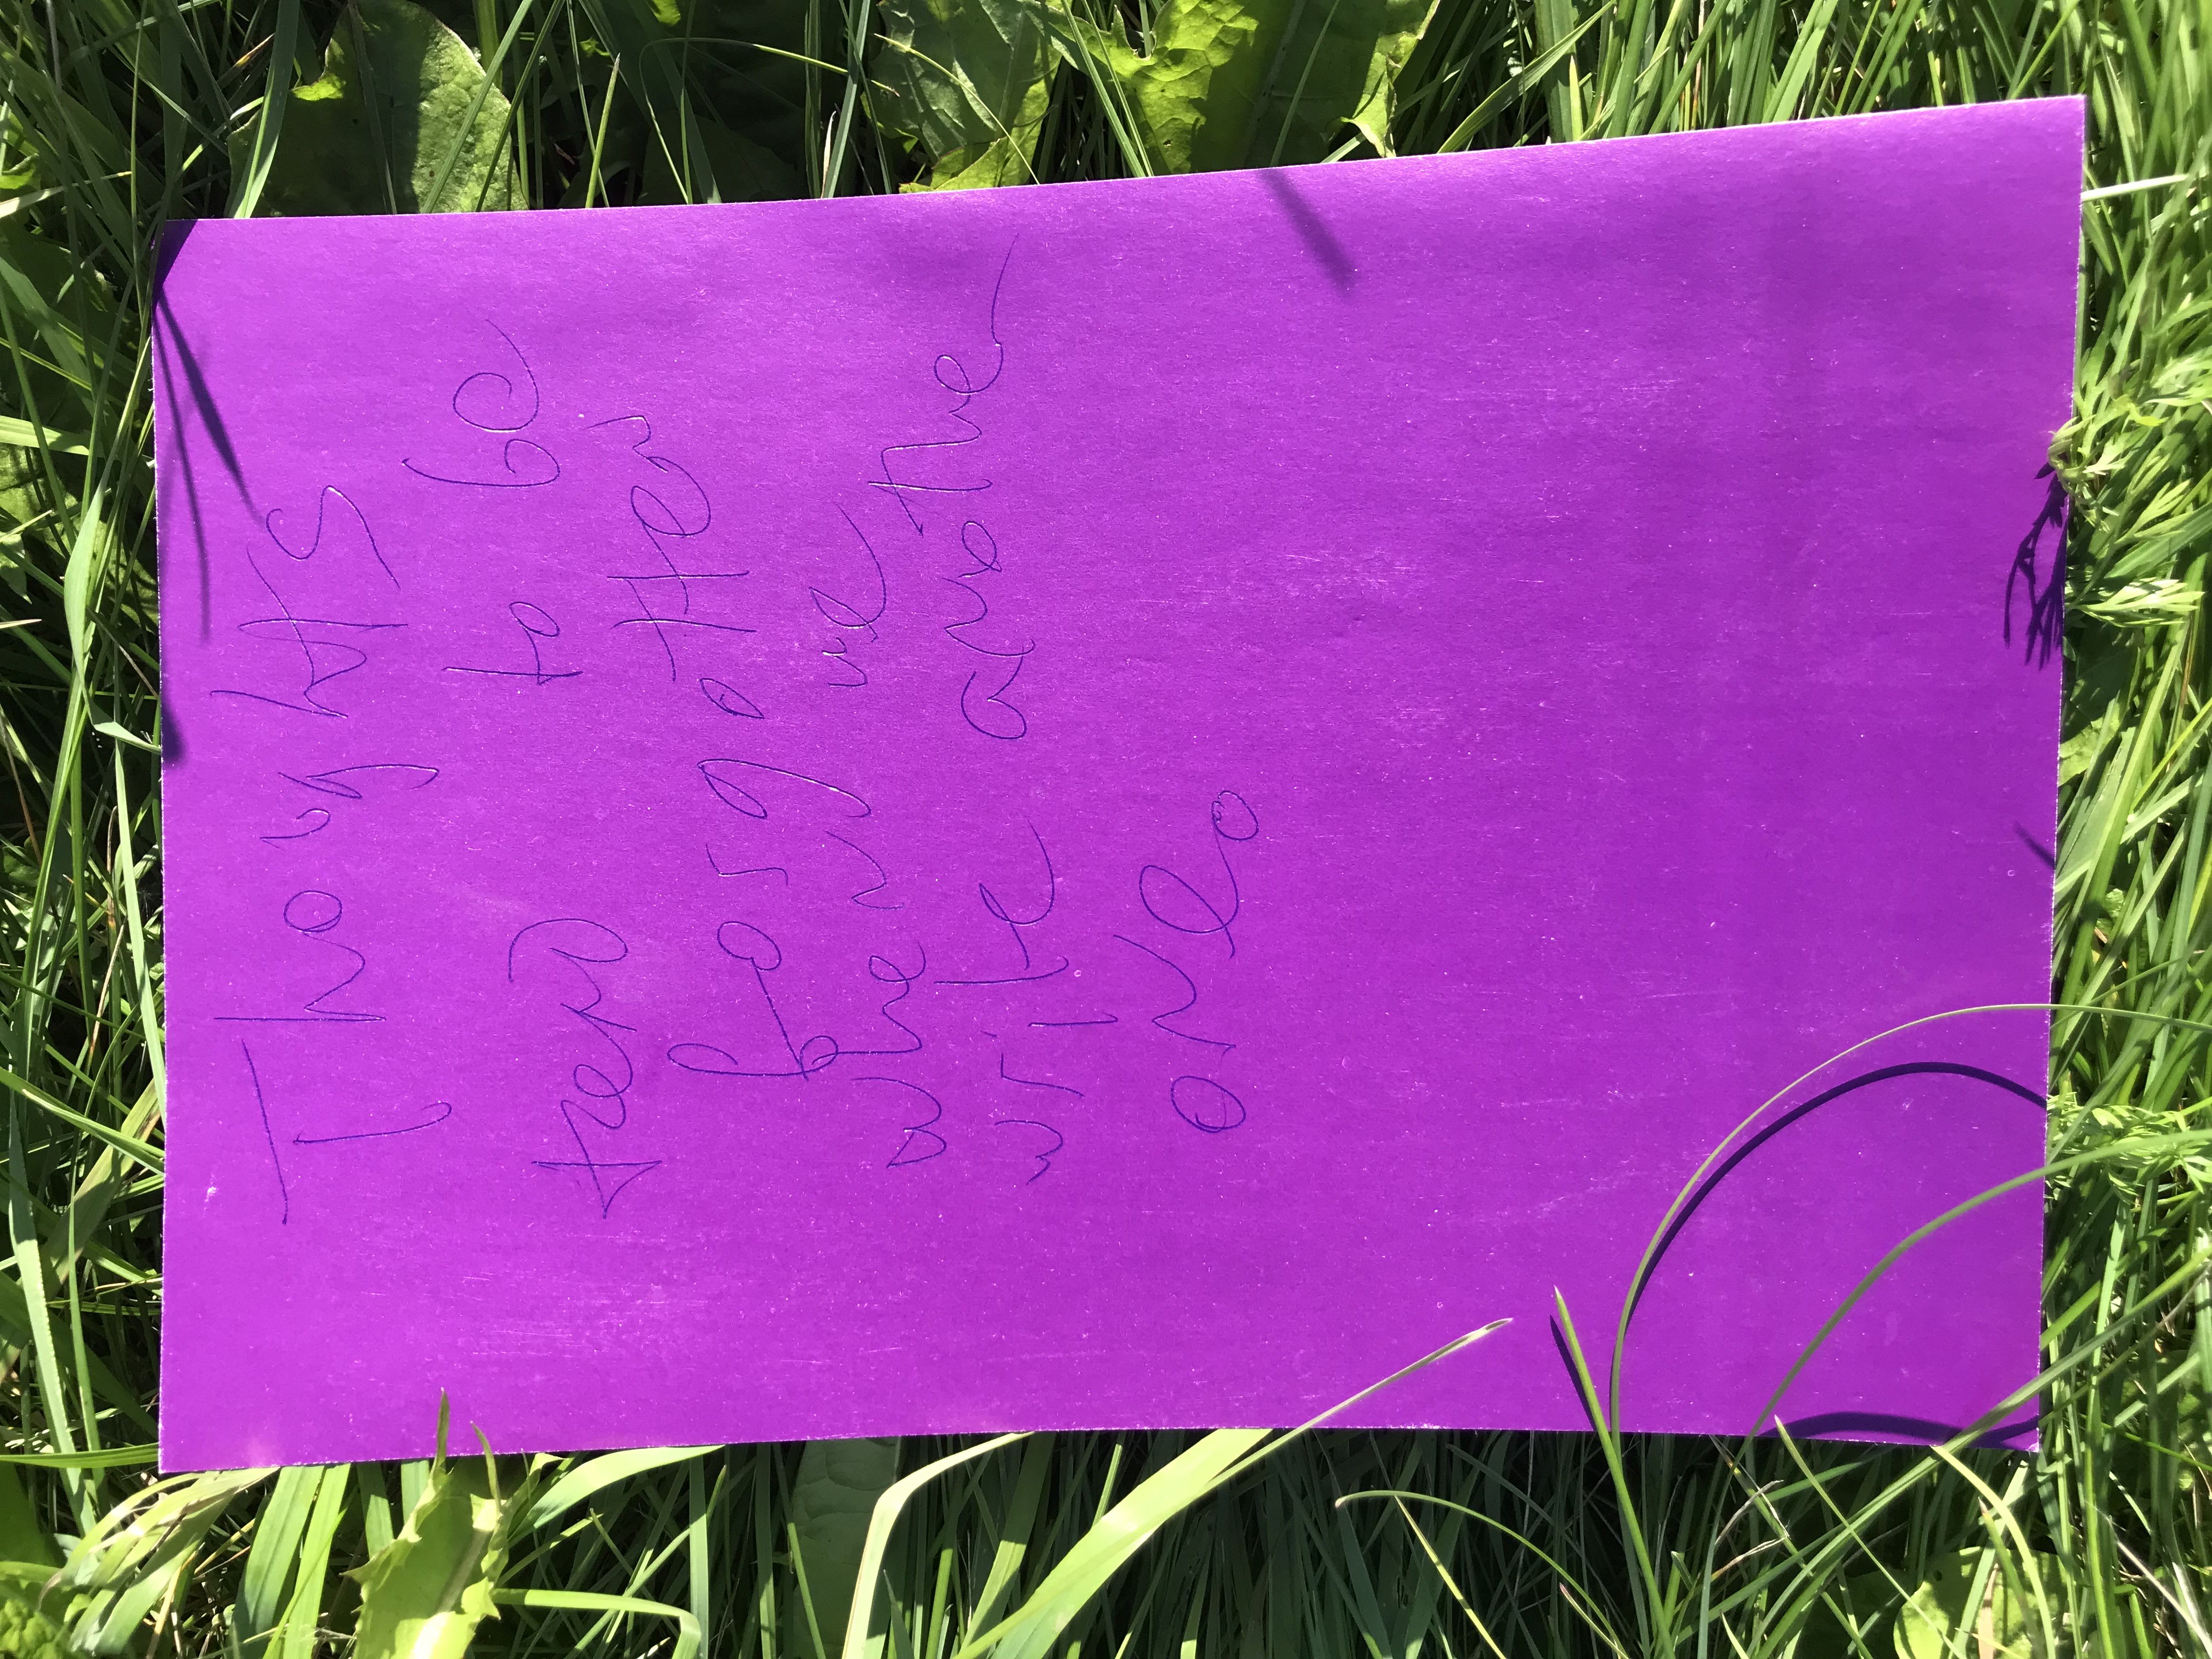 Thoughts
tend to be
forgotten
when we
write another
one.